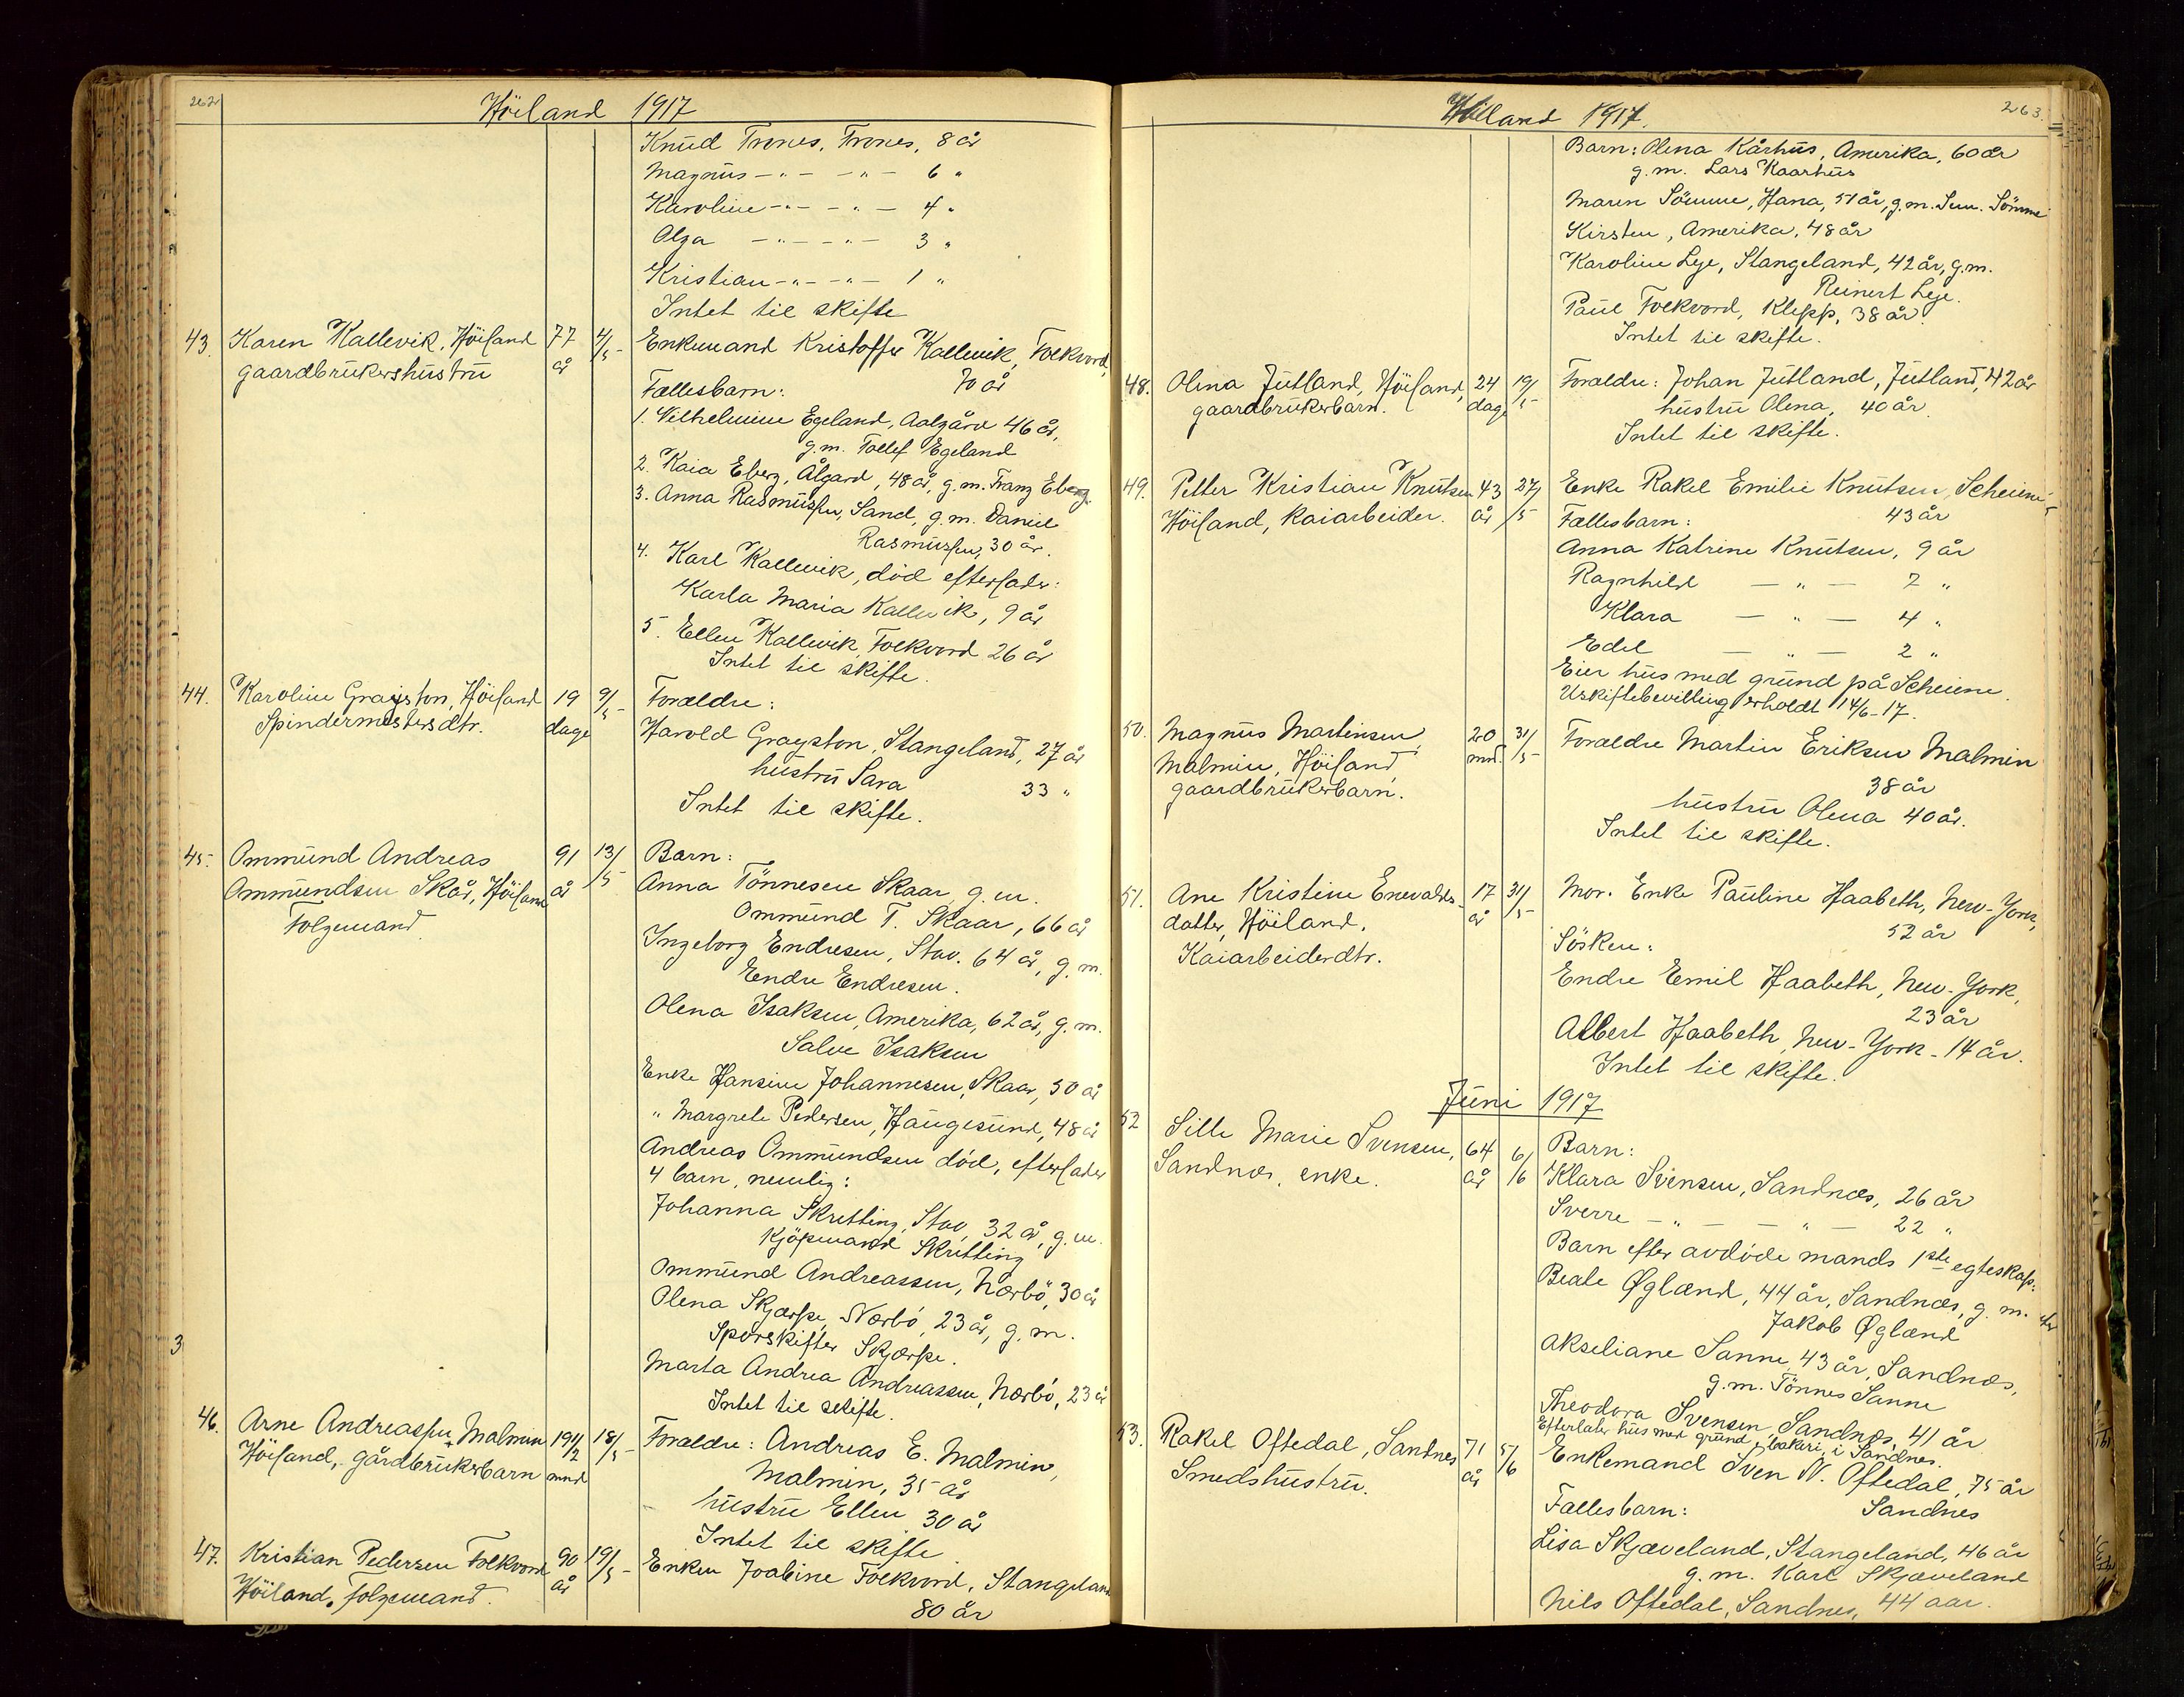 262
Höiland 1917
Knud Trones, Trones, 8 år
Magnus -"- -"- 6 "
Karoline -"- -"- 4 "
Olga -"- -"- 3 "
Kristian -"- -"- 1 "
Intet til skifte
43. Karen Kallevik, Höiland 77 4/5 Enkemand Kristoffer Kallevik, Folkvord,
gaardbrukershustru år 70 år
Fællesbarn:
1. Vilhelmine Egeland, Aalgård 46 år,
g.m. Tollef Egeland
2. Kaia Eberg, Ålgard, 48 år, g.m. Franz Eberg.
3. Anna Rasmussen, Sand, g.m. Daniel
Rasmussen, 30 år.
4. Karl Kallevik, död efterlader:
Karla Maria Kallevik, 9 år
5. Ellen Kallevik, Folkvord 26 år
Intet til skifte.
44. Karoline Grayston, Höiland 19 9/5 Forældre:
Spindermestersdtr. dage Harold Grayston, Stangeland, 27 år
hustru Sara 33 "
Intet til skifte.
45. Ommund Andreas 91 13/5 Barn:
Ommundsen Skår, Höiland år Anna Tönnesen Skaar g.m.
Folgemand Ommund T. Skaar, 66 år
Ingeborg Endresen, Stav. 64 år, g.m.
Endre Endresen.
Olena Isaksen, Amerika, 62 år, g.m.
Salve Isaksen
Enke Hansine Johannesen, Skaar, 50 år
" Margrete Pedersen, Haugesund, 48 år
Andreas Ommundsen död, efterlader
4 barn, nemlig:
Johanna Skretting, Stav, 32 år, g.m.
Kjöpmand Skretting
Ommund Andreassen, Nærbö, 30 år
Olena Skjærpe, Nærbö, 23 år, g.m.
Sporskifter Skjærpe.
Marta Andrea Andreassen, Nærbö, 23 år
Intet til skifte.
3
46. Arne Andreassen Malmin 19 1/2 18/5 Forældre: Andreas E. Malmin,
Höiland, gårdbrukerbarn mnd Malmin, 35 år
hustru Ellen 30 år
Intet til skifte
47. Kristian Pedersen Folkvord 90 19/5 Enken Joabine Folkvord, Stangeland
Höiland. Folgemand. år 80 år
263.
Höiland 1917.
Barn: Olena Kårhus, Amerika, 60 år
g.m. Lars Kaarhus
Maren Sömme, Hana, 51 år, g.m. Sömme
Kirsten, Amerika, 48 år
Karoline Lye, Stangeland, 42 år, g.m.
Reinert Lye.
Paul Folkvord, Klepp, 38 år.
Intet til skifte.
48. Olena Jutland, Höiland, 24 19/5 Forældre: Johan Jutland, Jutland, 42 år
gaardbrukerbarn. dage hustru Olena, 40 år.
Intet til skifte.
49. Petter Kristian Knutsen 43 27/5 Enke Rakel Emilie Knutsen, Scheiene
Höiland, Kaiarbeider. år 43 år
Fællesbarn:
Anna Katrine Knutsen, 9 år
Ragnhild - " - 7 "
Klara - " - 4 "
Edel - " - 2 "
Eier hus med grund på Scheiene.
Uskiftebevilling erholdt 14/6-17.
50. Magnus Martinsen 20 31/5 Forældre Martin Eriksen Malmin
Malmin, Höiland, mnd. 38 år
gaardbrukerbarn. hustru Olena 40 år.
Intet til skifte.
51. Ane Kristine Enevalds- 17 31/5 Mor. Enke Pauline Haabeth, New-York,
datter, Höiland. år 52 år
Kaiarbeiderdtr. Sösken:
Endre Emil Haabeth, New-York,
23 år
Albert Haabeth, New-York - 14 år.
Intet til skifte.
Juni 1917
52 Sille Marie Svensen, 64 6/6 Barn:
Sandnæs, enke. år Klara Svensen, Sandnæs, 26 år
Sverre - " - - " - 22 "
Barn efter avdöde mands 1ste egteskap:
Beate Øglænd, 44 år, Sandnæs, g.m.
Jakob Øglænd
Akseliane Sanne, 43 år, Sandnæs,
g.m. Tönnes Sanne
Theodora Svensen, Sandnæs, 41 år
Efterlater hus med grund, bakeri, i Sandnes.
53. Rakel Oftedal, Sandnes 71 5/6 Enkemand Sven N. Oftedal, 75 år
Smedshustru. år Sandnes
Fællesbarn:
Lisa Skjæveland, Stangeland, 46 år
g.m. Karl Skjæveland
Nils Oftedal, Sandnes, 44 aar.